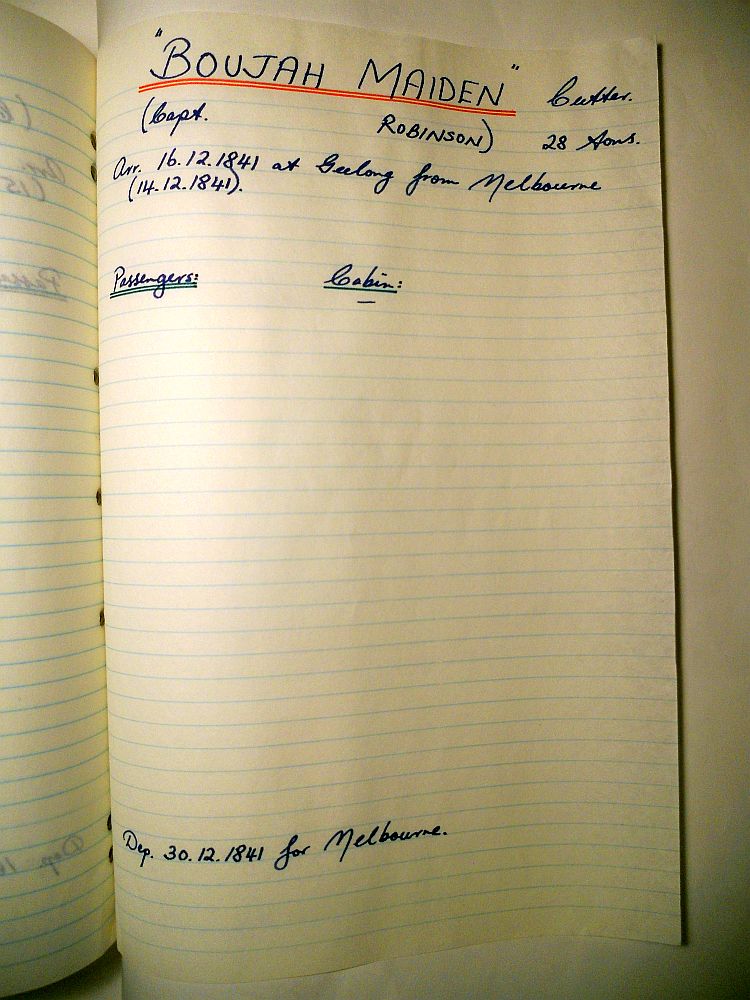 "BOUJAH MAIDEN" Cutter.
(Capt. ROBINSON) 28 Tons.
Arr. 16.12.1841 at Geelong from Melbourne
(14.12.1841).
Passengers: Cabin:
—
Dep. 30.12.1841 for Melbourne.